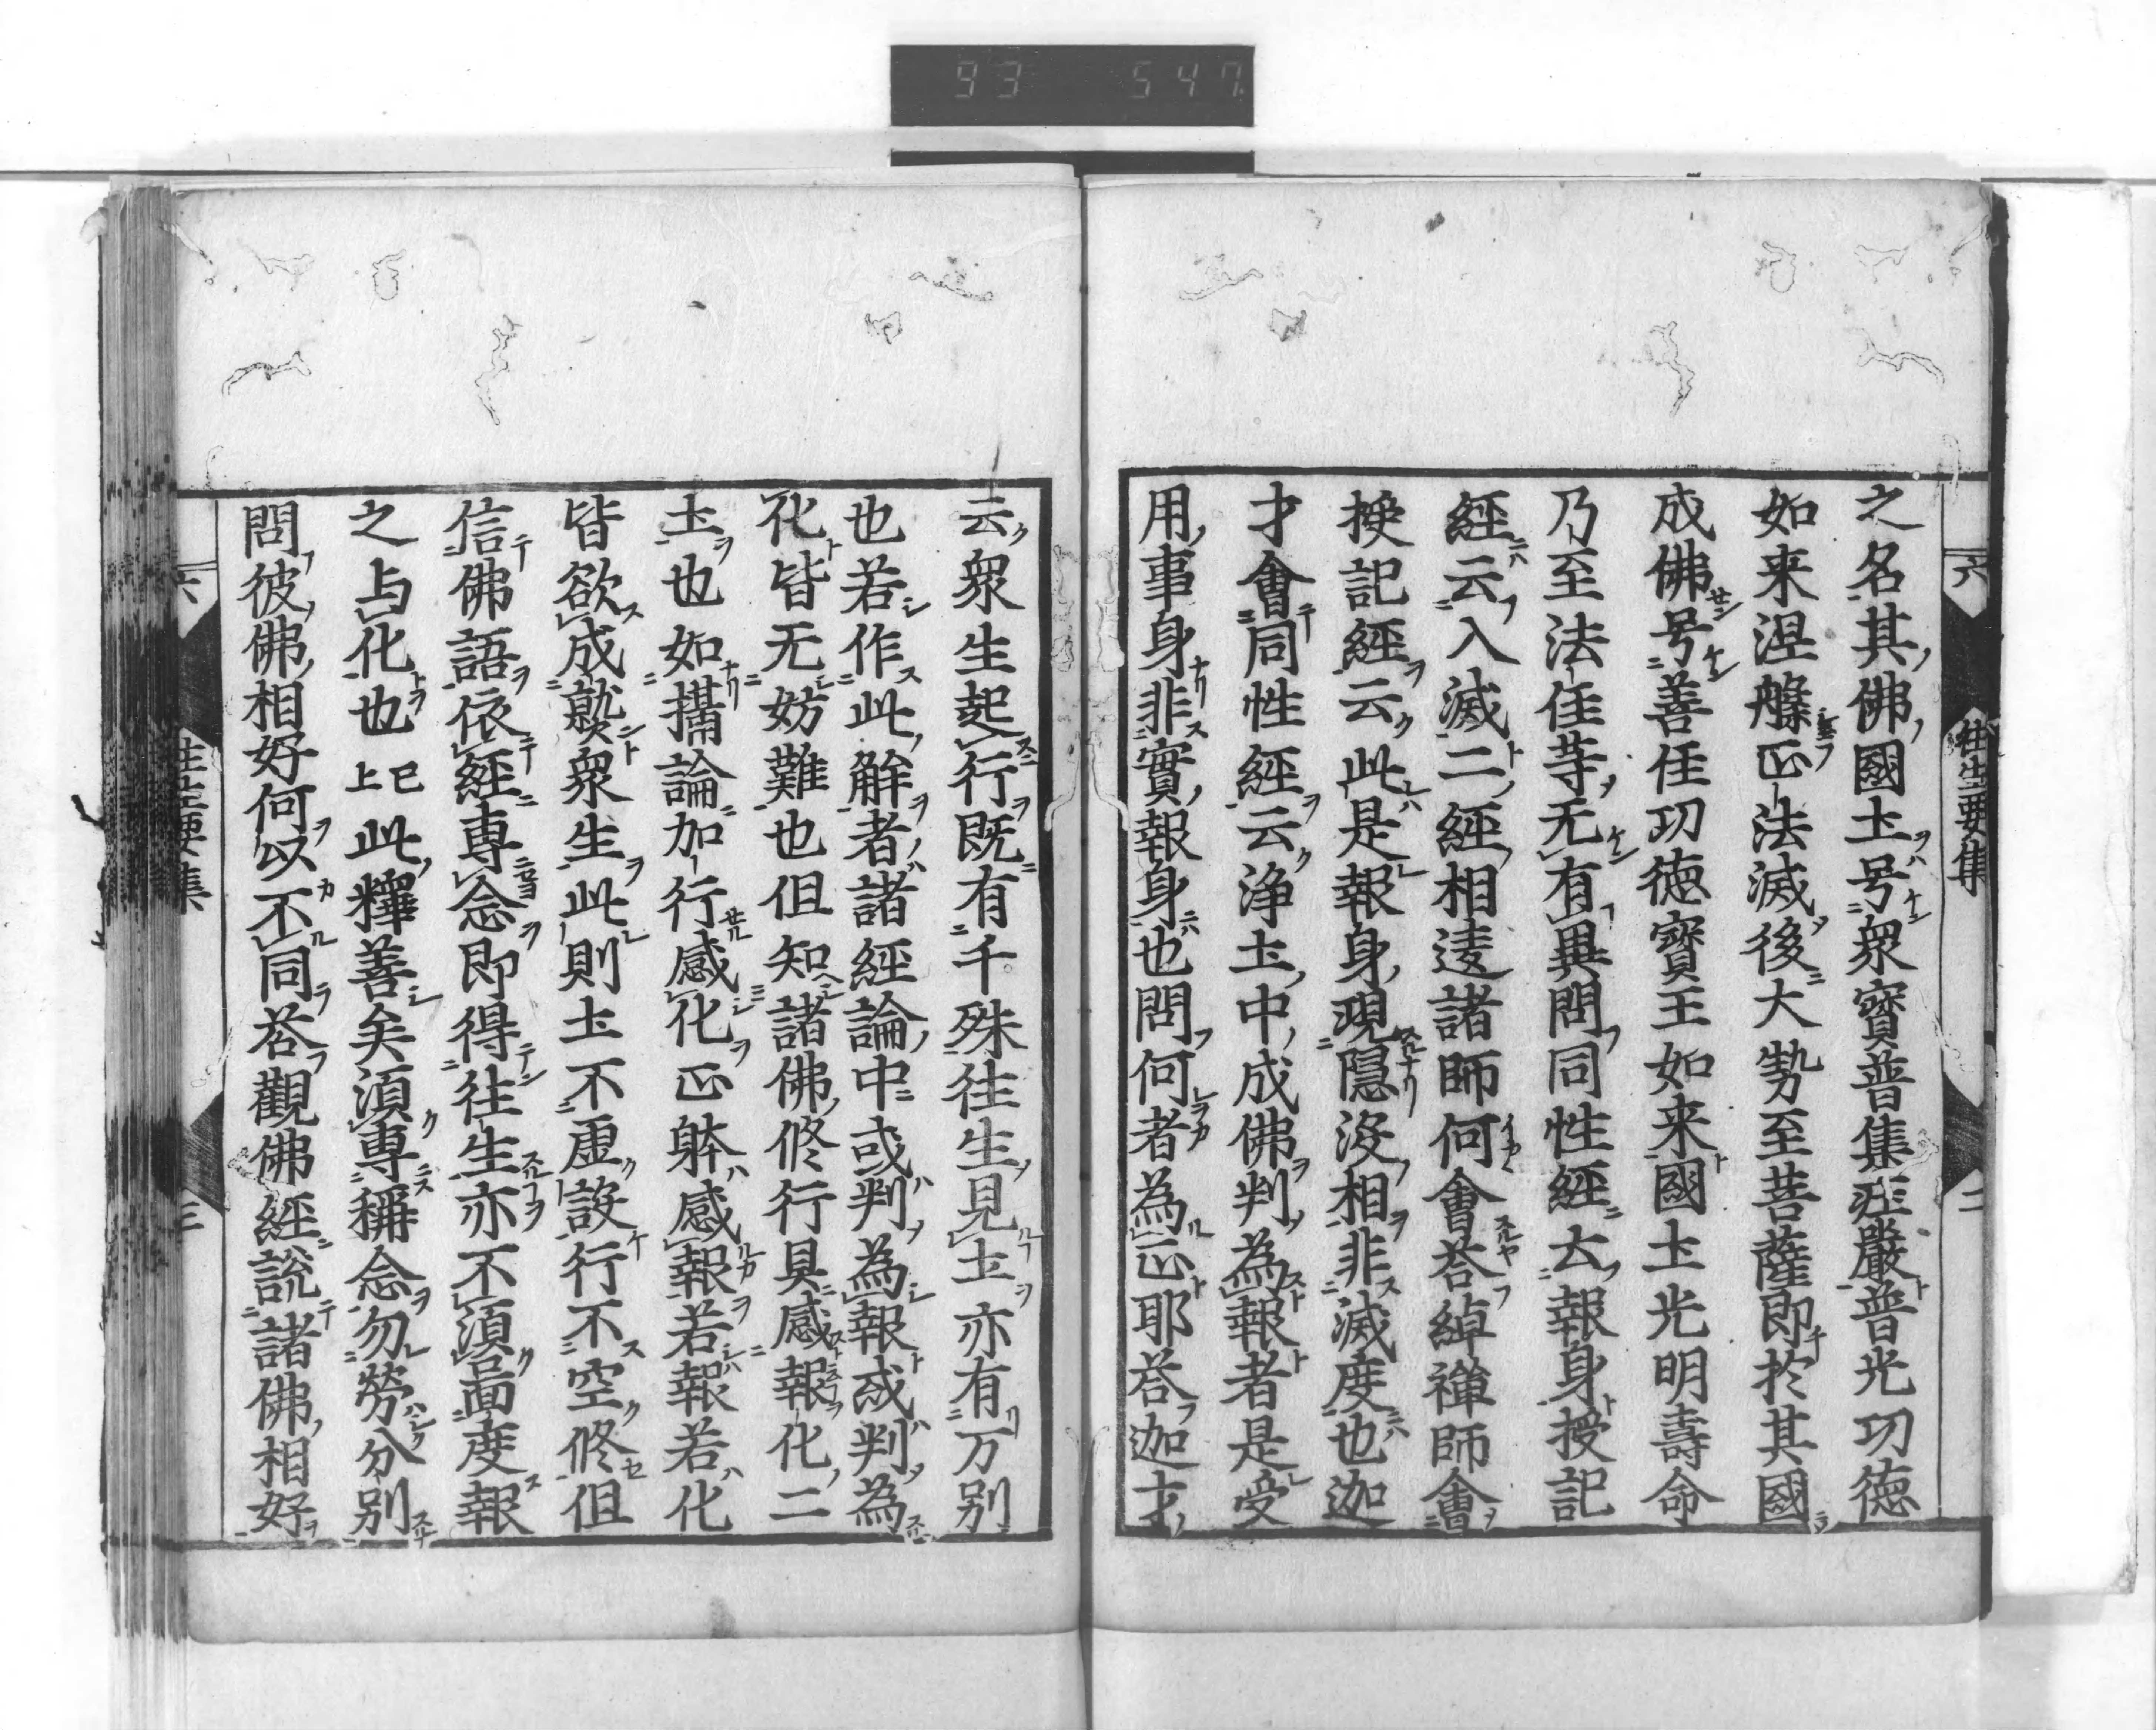 93 547
六 往生要集 二
之名其佛國土号衆寳普集疰嚴普光功徳
如来涅槃正法滅後大勢至菩薩即於其國
成佛号善住功徳寳王如来國土光明壽命
乃至法住等无有異問同性経云報身授記
経云入滅二経相違諸師何會荅綽禅師會
授記経云此是報身現隠没相非滅度也迦
才會同性経云浄土中成佛判為報者是受
用事身非實報身也問何者為正耶荅迦才
云衆生起行既有千殊往生見土亦有万别
也若作此觧者諸経論中或判為報或判為
化皆无妨難也但知諸佛修行具感報化二
土也如攝論加行感化正躰感報若報若化
皆欲成就衆生此則土不虚設行不空修但
信佛語依経専念即得往生亦不湏啚度報
之与化也已上此釋善矣湏専稱念勿勞分别
問彼佛相好何以不同荅觀佛経説諸佛相好
六 往生要集 三